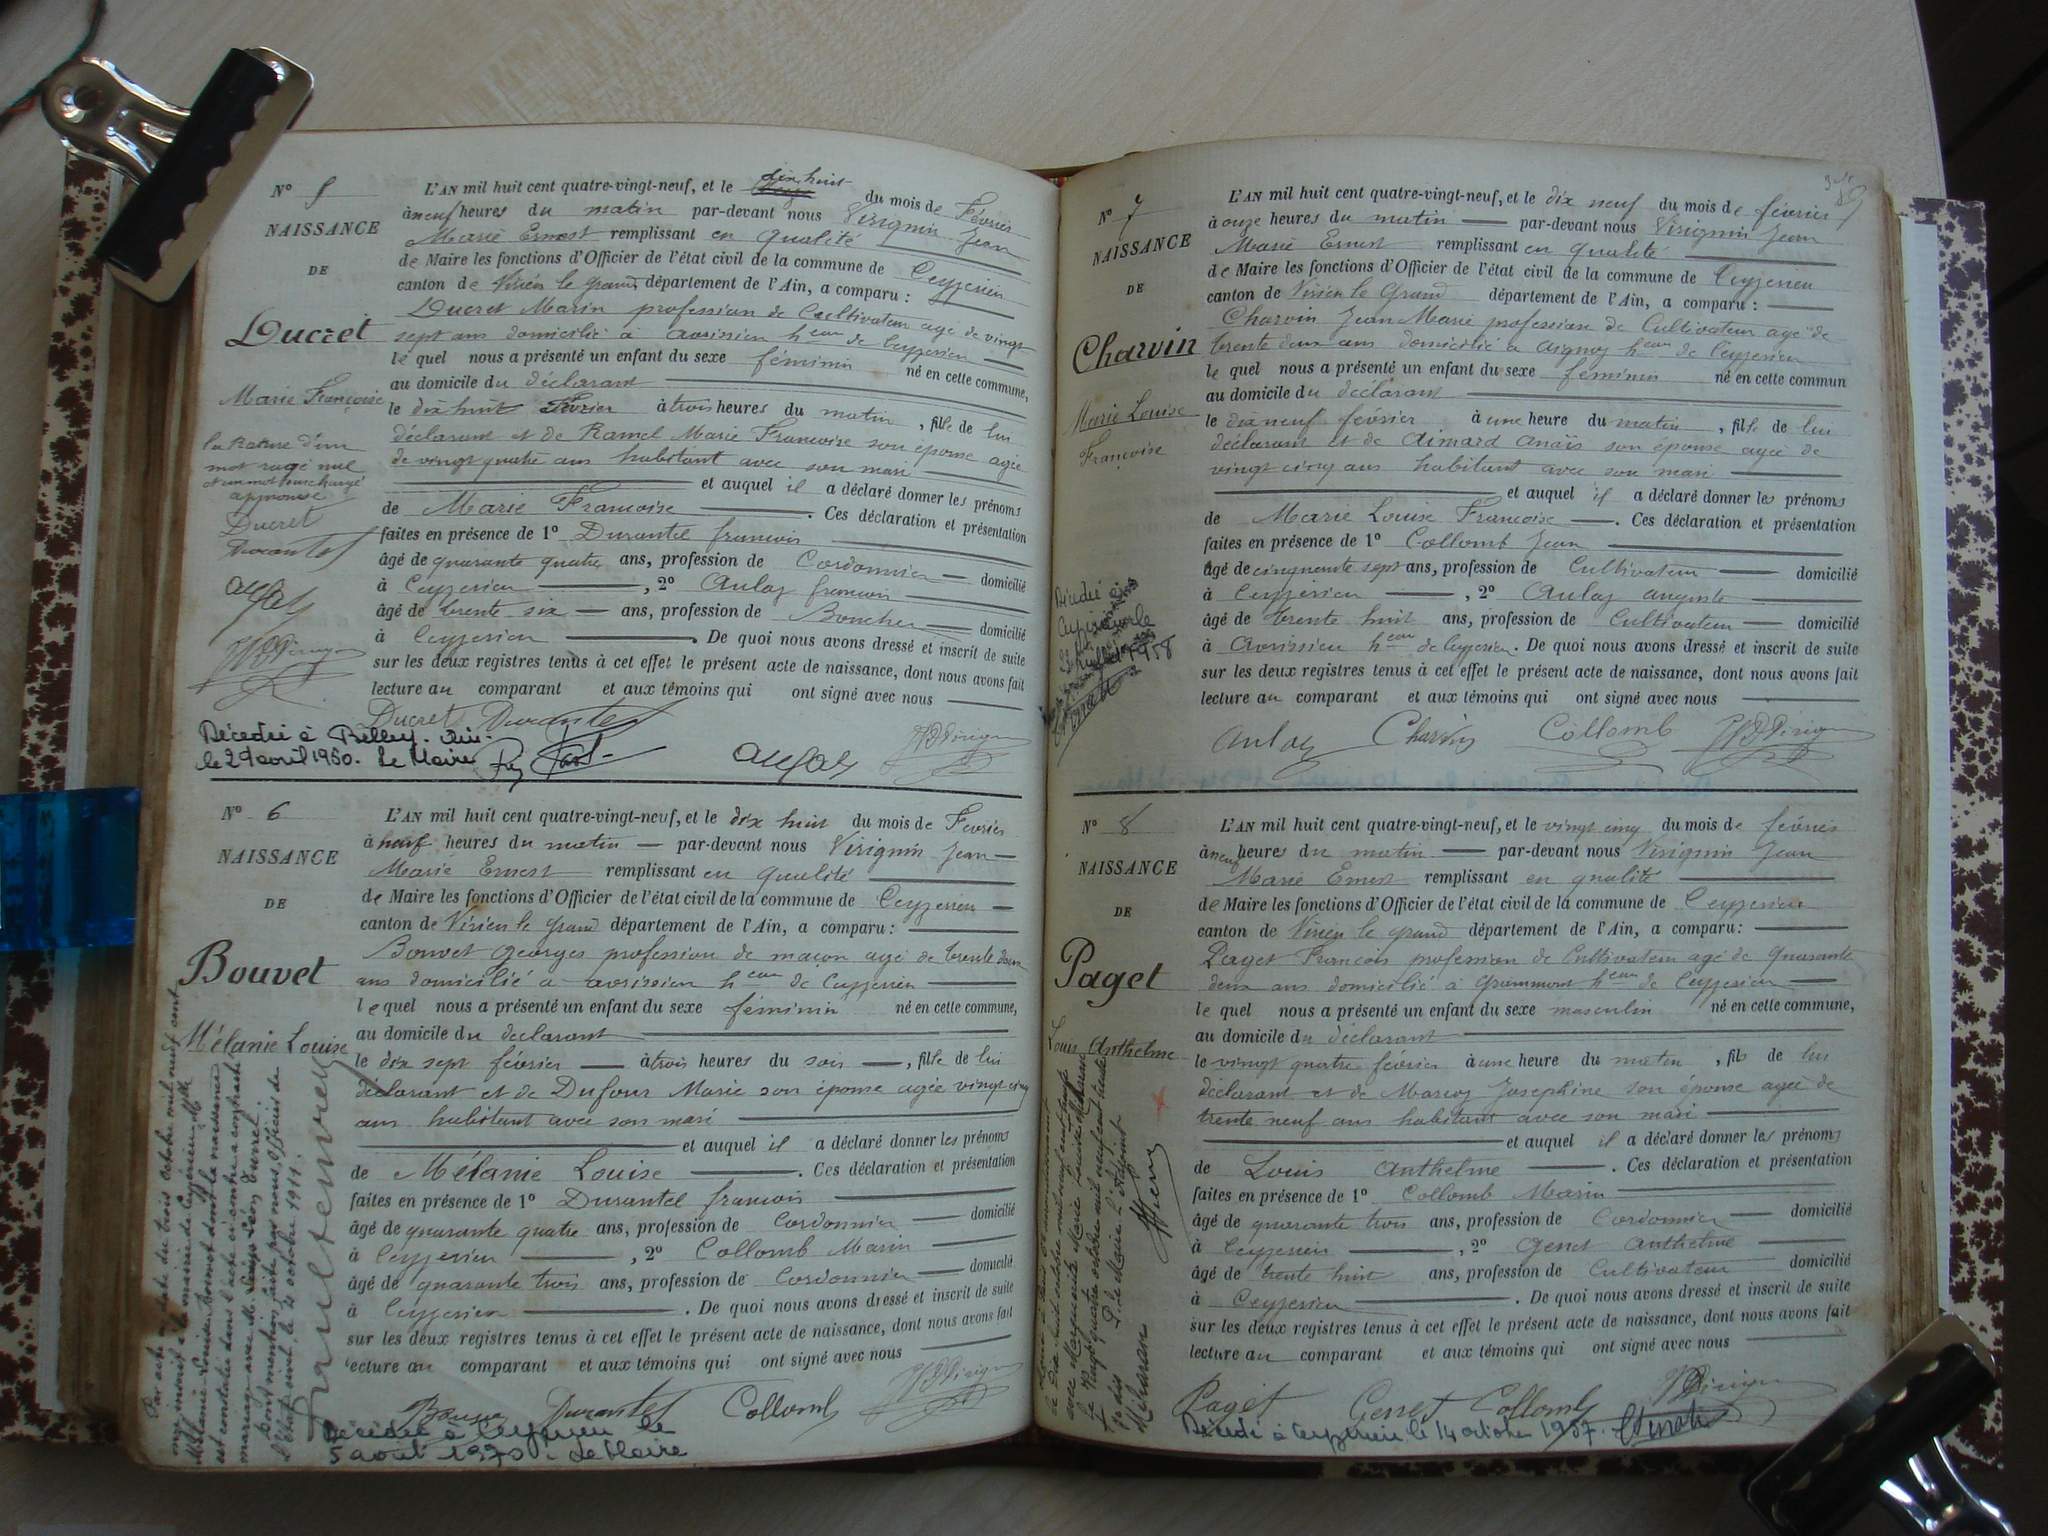 N° 5
NAISSANCE
DE
Ducret
Marie Françoise
la Rature d'un
mot rayé nul
et un mot surchargé
approuvé
Ducret
Durantet
Aulaz
L'AN mil huit cent quatre-vingt-neuf, et le dix huit du mois de Février
à neuf heures du matin par-devant nous Virignin Jean
Marie Ernest remplissant en qualité
de Maire les fonctions d'Officier de l'état civil de la commune de Ceyzerieu
canton de Virieu le Grand département de l'Ain, a comparu :
Ducret Marin profession de Cultivateur agé de vingt
sept ans domicilié à Avrissieu heau de Ceyzerieu
lequel nous a présenté un enfant du sexe féminin né en cette commune,
au domicile du déclarant
le dix huit Février à trois heures du matin, fille de lui
déclarant et de Ramel Marie Francoise son épouse agée
de vingt quatre ans habitant avec son mari
et auquel il a déclaré donner les prénoms
de Marie Francoise. Ces déclaration et présentation
faites en présence de 1° Durantet francois
âgé de quarante quatre ans, profession de Cordonnier domicilié
à Ceyzerieu, 2° Aulaz francois
âgé de trente six ans, profession de Boucher domicilié
à Ceyzerieu. De quoi nous avons dressé et inscrit de suite
sur les deux registres tenus à cet effet le présent acte de naissance, dont nous avons fait
lecture au comparant et aux témoins qui ont signé avec nous
Ducret Durantet
Décédée à Belley. Ain.
le 29 avril 1950. Le Maire
Aulaz
N° 6
NAISSANCE
DE
Bouvet
Mélanie Louise
Par acte en date du trois octobre mil neuf cent
onze, inscrit à la mairie de Ceyzérieu, Mlle
Mélanie Louise Bouvet dont la naissance
est constatée dans l'acte ci-contre a contracté
mariage avec Mr
Dont mention faite par nous, Officier de
l'état civil, le 4 octobre 1911.
L'AN mil huit cent quatre-vingt-neuf, et le dix huit du mois de Fevrier
à neuf heures du matin par-devant nous Virignin Jean
Marie Ernest remplissant en qualité
de Maire les fonctions d'Officier de l'état civil de la commune de Ceyzerieu
canton de Virieu le Grand département de l'Ain, a comparu :
Bouvet Georges profession de maçon agé de trente deux
ans domicilié à Avrissieu heau de Ceyzerieu
lequel nous a présenté un enfant du sexe féminin né en cette commune,
au domicile du declarant
le dix sept février à trois heures du soir, fille de lui
déclarant et de Dufour Marie son épouse agée vingt cinq
ans habitant avec son mari
et auquel il a déclaré donner les prénoms
de Mélanie Louise. Ces déclaration et présentation
faites en présence de 1° Durantet francois
âgé de quarante quatre ans, profession de Cordonnier domicilié
à Ceyzerieu, 2° Collomb Marin
âgé de quarante trois ans, profession de Cordonnier domicilié
à Ceyzerieu. De quoi nous avons dressé et inscrit de suite
sur les deux registres tenus à cet effet le présent acte de naissance, dont nous avons fait
lecture au comparant et aux témoins qui ont signé avec nous
Durantet Collomb
Décédée à Ceyzerieu le
5 août 1970. Le Maire
N° 7
NAISSANCE
DE
Charvin
Marie Louise
Françoise
L'AN mil huit cent quatre-vingt-neuf, et le dix neuf du mois de février
à onze heures du matin par-devant nous Virignin Jean
Marie Ernest remplissant en qualité
de Maire les fonctions d'Officier de l'état civil de la commune de Ceyzerieu
canton de Virieu le Grand département de l'Ain, a comparu :
Charvin Jean Marie profession de Cultivateur agé de
trente deux ans domicilié à Aignoz heau de Ceyzerieu
lequel nous a présenté un enfant du sexe féminin né en cette commun
au domicile du déclarant
le dix neuf février à une heure du matin, fille de lui
déclarant et de Aimard Anaïs son épouse agée de
vingt cinq ans habitant avec son mari
et auquel il a déclaré donner les prénoms
de Marie Louise Francoise. Ces déclaration et présentation
faites en présence de 1° Collomb Jean
âgé de cinquante sept ans, profession de Cultivateur domicilié
à Ceyzerieu, 2° Aulaz auguste
âgé de trente huit ans, profession de Cultivateur domicilié
à Avrissieu heau de Ceyzerieu. De quoi nous avons dressé et inscrit de suite
sur les deux registres tenus à cet effet le présent acte de naissance, dont nous avons fait
lecture au comparant et aux témoins qui ont signé avec nous
Aulaz Charvin Collomb
N° 8
NAISSANCE
DE
Paget
Louis Anthelme
L'AN mil huit cent quatre-vingt-neuf, et le vingt cinq du mois de février
à neuf heures du matin par-devant nous Virignin Jean
Marie Ernest remplissant en qualité
de Maire les fonctions d'Officier de l'état civil de la commune de Ceyzerieu
canton de Virieu le grand département de l'Ain, a comparu :
Paget Francois profession de Cultivateur agé de quarante
deux ans domicilié à Grammont heau de Ceyzerieu
lequel nous a présenté un enfant du sexe masculin né en cette commune,
au domicile du déclarant
le vingt quatre février à une heure du matin, fils de lui
déclarant et de Marion Josephine son épouse agée de
trente neuf ans habitant avec son mari
et auquel il a déclaré donner les prénoms
de Louis Anthelme. Ces déclaration et présentation
faites en présence de 1° Collomb Marin
âgé de quarante trois ans, profession de Cordonnier domicilié
à Ceyzerieu, 2° Genet Anthelme
âgé de trente huit ans, profession de Cultivateur domicilié
à Ceyzerieu. De quoi nous avons dressé et inscrit de suite
sur les deux registres tenus à cet effet le présent acte de naissance, dont nous avons fait
lecture au comparant et aux témoins qui ont signé avec nous
Paget Genet Collomb
Décédé à Ceyzerieu le 14 octobre 1957.